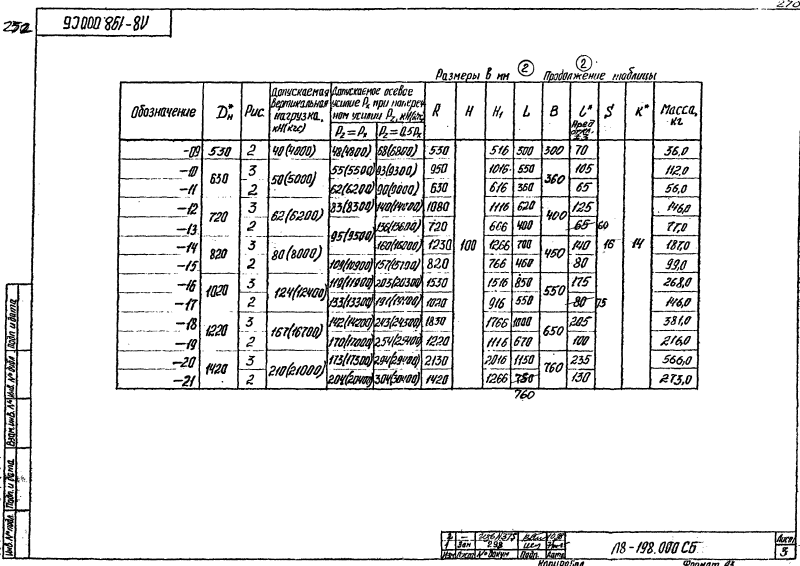 270
252
Л8-198.000СБ
Размеры в мм ② Продолжение таблицы ②
Обозначение Dн* Рис. Допускаемая вертикальная нагрузка, кН(кгс) Допускаемое осевое усилие Px при попереч-ном усилии Pz, кН(кгс) R H H1 L B l* S K* Масса, кг
Pz=Px Pz=0.5Px
-09 530 2 40(4000) 48(4800) 68(6800) 530 516 300 300 70 36,0
-10 630 3 50(5000) 55(5500) 93(9300) 950 1016 550 360 105 112,0
-11 2 62(6200) 90(9000) 630 616 360 65 56,0
-12 720 3 62(6200) 83(8300) 140(14000) 1080 1116 620 400 125 146,0
-13 2 95(9500) 136(13600) 720 666 400 65 60 77,0
-14 820 3 80(8000) 160(16000) 1230 100 1266 700 450 140 16 14 187,0
-15 2 109(10900) 157(15700) 820 766 460 80 99,0
-16 1020 3 124(12400) 119(11900) 203(20300) 1530 1516 850 550 175 268,0
-17 2 133(13300) 1020 916 550 80 75 146,0
-18 1220 3 167(16700) 142(14200) 243(24300) 1830 1766 1000 650 205 381,0
-19 2 170(17000) 254(25400) 1220 1116 670 100 216,0
-20 1420 3 210(21000) 173(17300) 294(29400) 2130 2016 1150 760 235 566,0
-21 2 204(20400) 304(30400) 1420 1266 750 130 273,0
760
Инв.№ подл. Подп. и дата Взам.инв.№ Инв.№ дубл. Подп. и дата
1 Зам 298
Изм Лист № докум Подп. Дата
Л8-198.000 СБ
Лист
3
Копировал Формат А3